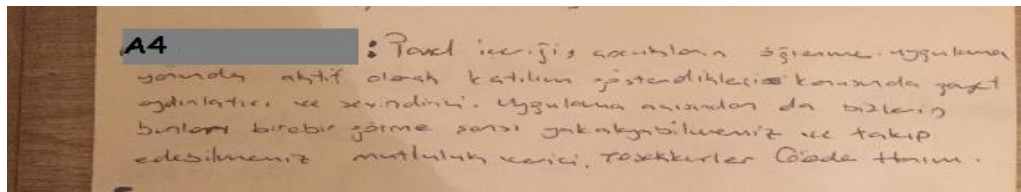 A4 : Panel içeriği, çocukların öğrenme uygulama
yönünde aktif olarak katılım gösterdikleri konusunda gayet
aydınlatıcı ve sevindirici. Uygulama açısından da bizlerin
bunları birebir görme şansı yakalayabilmemiz ve takip
edebilmemiz mutluluk verici. Teşekkürler Hanım.